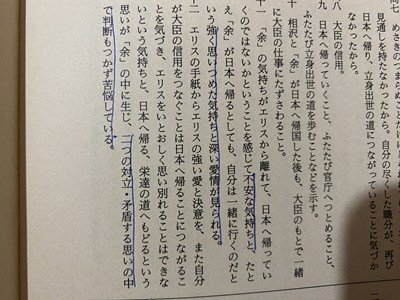 問七　めさきのつまらぬことだけ
見通しを持たなかったから。自分の尽くした職分が、再び
日本へ帰り、立身出世の道につながっていることに気づか
なかったから。
八　大臣の信用。
九　日本へ帰っていくこと、ふたたび官庁へつとめること、
ふたたび立身出世の道を歩むことなどを示す。
十　相沢と「余」が日本へ帰国した後も、大臣のもとで一緒
に大臣の仕事にたずさわること。
十一　「余」の気持ちがエリスから離れて、日本へ帰ってい
くのではないかということを感じて不安な気持ちと、たと
え「余」が日本へ帰るとしても、自分は一緒に行くのだと
いう強く思いつめた気持ちと深い愛情が見られる。
十二　エリスの手紙からエリスの強い愛と決意を、また自分
が大臣の信用をつなぐことは日本へ帰ることにつながるこ
とを気づき、エリスをいとおしく思い別れることはできな
いという気持ちと、日本へ帰る、栄達の道へもどるという
思いが「余」の中に生じ、二つの対立・矛盾する思いの中
で判断もつかず苦悩している。